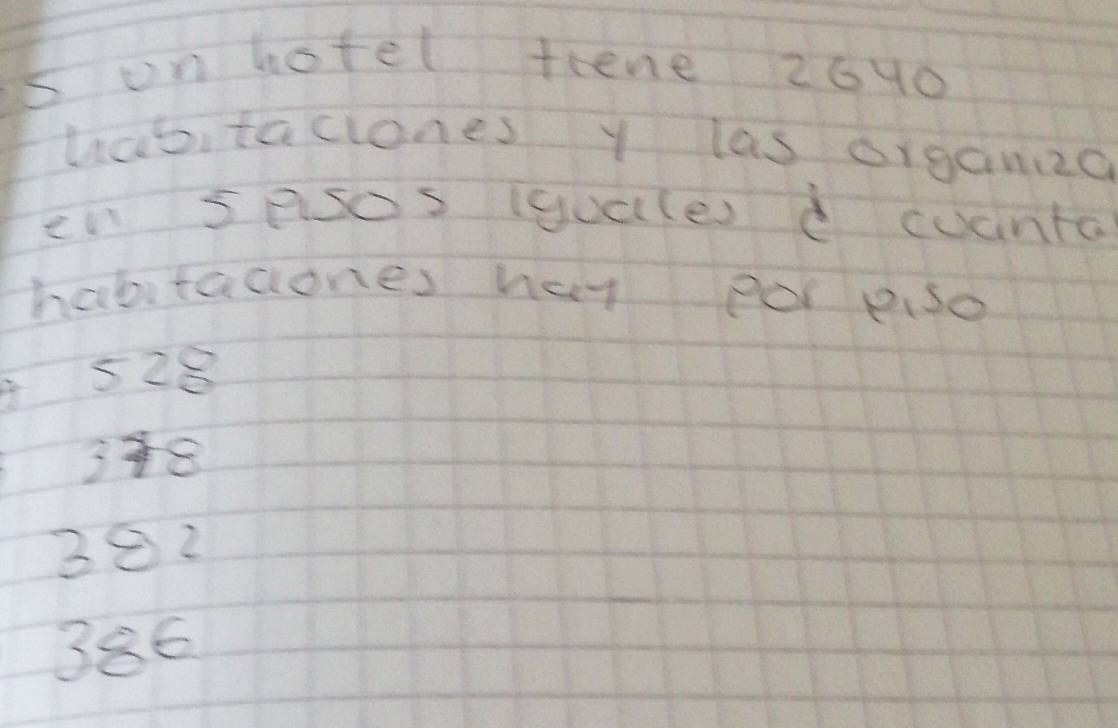 5 un hotel tiene 2640
habitaciones y las organiza
en 5 pisos iguales ¿ cuanta
habitaciones hay por piso
528
378
382
386